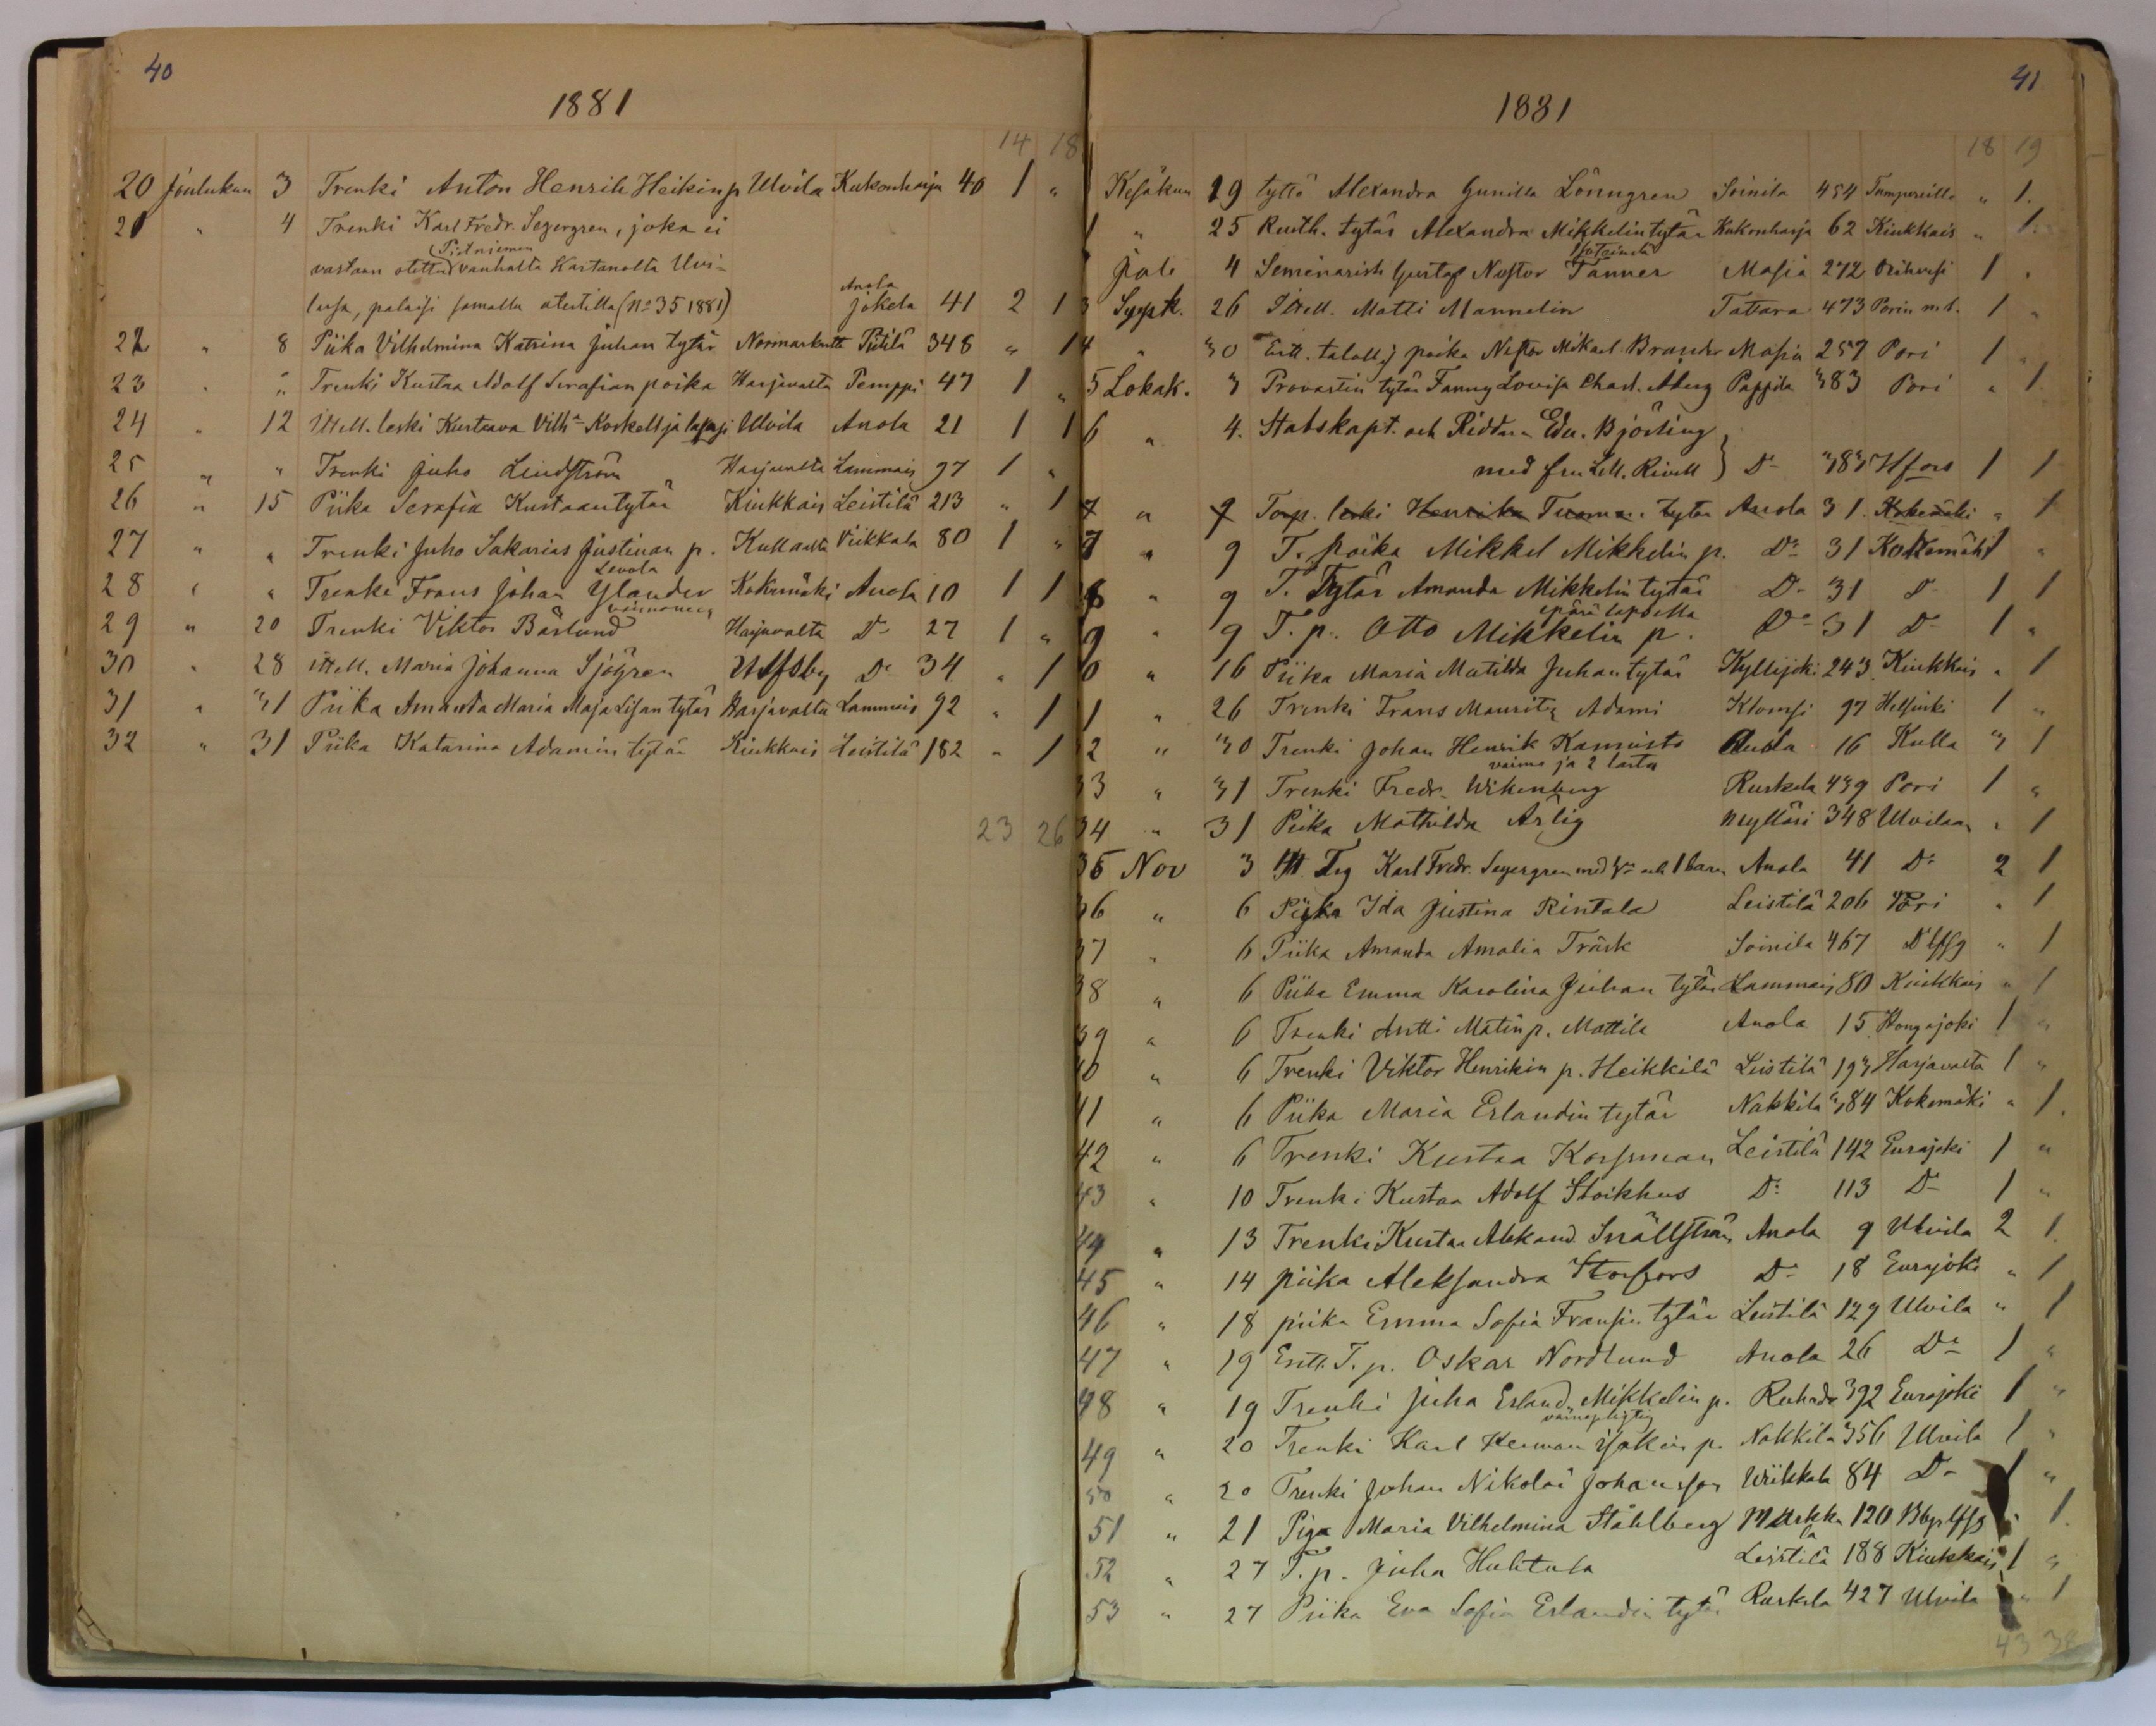 40
1881
14 18
20 Joulukun 3 Trenki Anton Henrik Heikinp Ulvila Kukonharja 40 1 "
21 " 4 Trenki Karl Fredr. Segergren, joka ei
Pietniemen
vastaan otettu vanhalta Kartanolta Ulvi-
Anola
lassa, palaisi samalla atestilla (No 35 1881) Jokela 41 2 1
22 " 8 Piika Vilhelmina Katrina Juhan tytär Normarkutta Pütilä 348 " 1
23 " " Trenki Kustaa Adolf Serafian poika Harjavalta Pemppi 47 1 "
24 " 12 Ittell. leski Kustaava Koskell ja lapsi Ulvila Anola 21 1 1
25 " " Trenki Juho Lindström Harjavalta Lammais 97 1 "
26 " 15 Piika Serafia Kustaantytär Kiukkais Leistilä 213 " 1
27 " " Trenki Juho Sakarias Justinan p. Kullaalta Viikkala 80 1 "
Levola
28 " " Trenki Frans Johan Ylander Kokemäki Anola 10 1 1
vaimoneen
29 " 20 Trenki Viktor Bärlund Harjavalta Do 27 1 "
30 " 28 Ittell. Maria Johanna Sjögren Ulfsby Do 34 " 1
31 " 31 Piika Amanda Maria Maja Lisan tytär Harjavalta Lammais 92 " 1
32 " 31 Piika Katarina Adamin tytär Kiukkais Leistilä 182 " 1
23 26
41
1881
18 19
Kesäkun 19 tyttö Alexandra Gunilla Lönngren Soinila 454 Tampereilla " 1.
1 " 25 Ruoth. tytär Alexandra Mikkelintytär Kukonharja 62 Kiukkais " 1
Jul. 4 Seminaristi Gustaf Nestor Tanner Masia 272 Orihvesi 1 "
3 Syysk. 26 Ittell. Matti Mannelin Tattara 473 Porin m.s. 1 "
4 " 30 Ent. taloll. poika Nestor Mikael Brander Masia 257 Pori 1 "
5 Lokak. 3 Provastin tytär Fanny Lovisa Charl. Aberg Pappila 383 Pori " 1.
6 " 4. Stabskapt. och Riddaren Edv. Björling
med fru Rivell } Do 383 Hfors 1 1
7 " 9 Torp. leski Henrika Tuoma. tytär Anola 31. Kokemäki " 1
7 " 9 T. poika Mikkel Mikkelin p. Do 31 Kokemäki 1 "
8 " 9 T. Tytär Amanda Mikkelin tytär Do 31 Do 1 1
äpärä lapsella
9 " 9 T. p. Otto Mikkelin p. Do 31 Do 1 "
0 " 16 Piika Maria Matilda Juhan tytär Kyllijoki 243 Kiukkais " 1
1 " 26 Trenki Frans Mauritz Adami Klomsi 97 Helsinki 1 "
2 " 30 Trenki Johan Henrik Kannisto Anola 16 Kulla 3 1
vaimo ja 2 lasta
33 " 31 Trenki Fredr. Wikenberg Ruskela 439 Pori 1 "
34 " 31 Piika Mathilda Ärlig Mylläri 348 Ulvilaan " 1
35 Nov 3 Karl Fredr. Segergren med och 1 barn Anola 41 Do 2 1
36 " 6 Piika Ida Justina Rintala Leistilä 206 Pori " 1
37 " 6 Piika Amanda Amalia Träsk Soinila 467 " 1
38 " 6 Piika Emma Karolina Juhan tytär Lammais 80 Kiukkais " 1
39 " 6 Trenki Antti Matin p. Mattila Anola 15 Hongajoki 1 "
40 " 6 Trenki Viktor Henrikin p. Heikkilä Leistilä 193 Harjavalta 1 "
41 " 6 Piika Maria Erlandin tytär Nakkila 384 Kokemäki " 1.
42 " 6 Trenki Kustaa Korsman Leistilä 142 Eurajoki 1 "
43 " 10 Trenki Kustaa Adolf Stoikhus Do 113 Do 1 "
44 " 13 Trenki Kustaa Aleksand. Snällström Anola 9 Ulvila 2 1.
45 " 14 piika Aleksandra Storfors Do 18 Eurajoki " 1
46 " 18 piika Emma Sofia Fransin tytär Leistilä 129 Ulvila " 1
47 " 19 Entt. T. p. Oskar Nordlund Anola 26 Do 1 "
48 " 19 Trenki Juha Erland Mikkelin p. Ruhade 392 Eurajoki 1 "
49 " 20 Trenki Karl Herman Isakin p. Nakkila 356 Ulvila 1 "
50 " 20 Trenki Johan Nikolai Johansson Wiikkala 84 Do 1 "
51 " 21 Piga Maria Vilhelmina Ståhlberg 120 " 1.
52 " 27 T. p. Juha Huhtala Leistilä 188 Kiukkais 1 "
53 " 27 Piika Eva Sofia Erlandin tytär Ruskela 427 Ulvila " 1
43 38